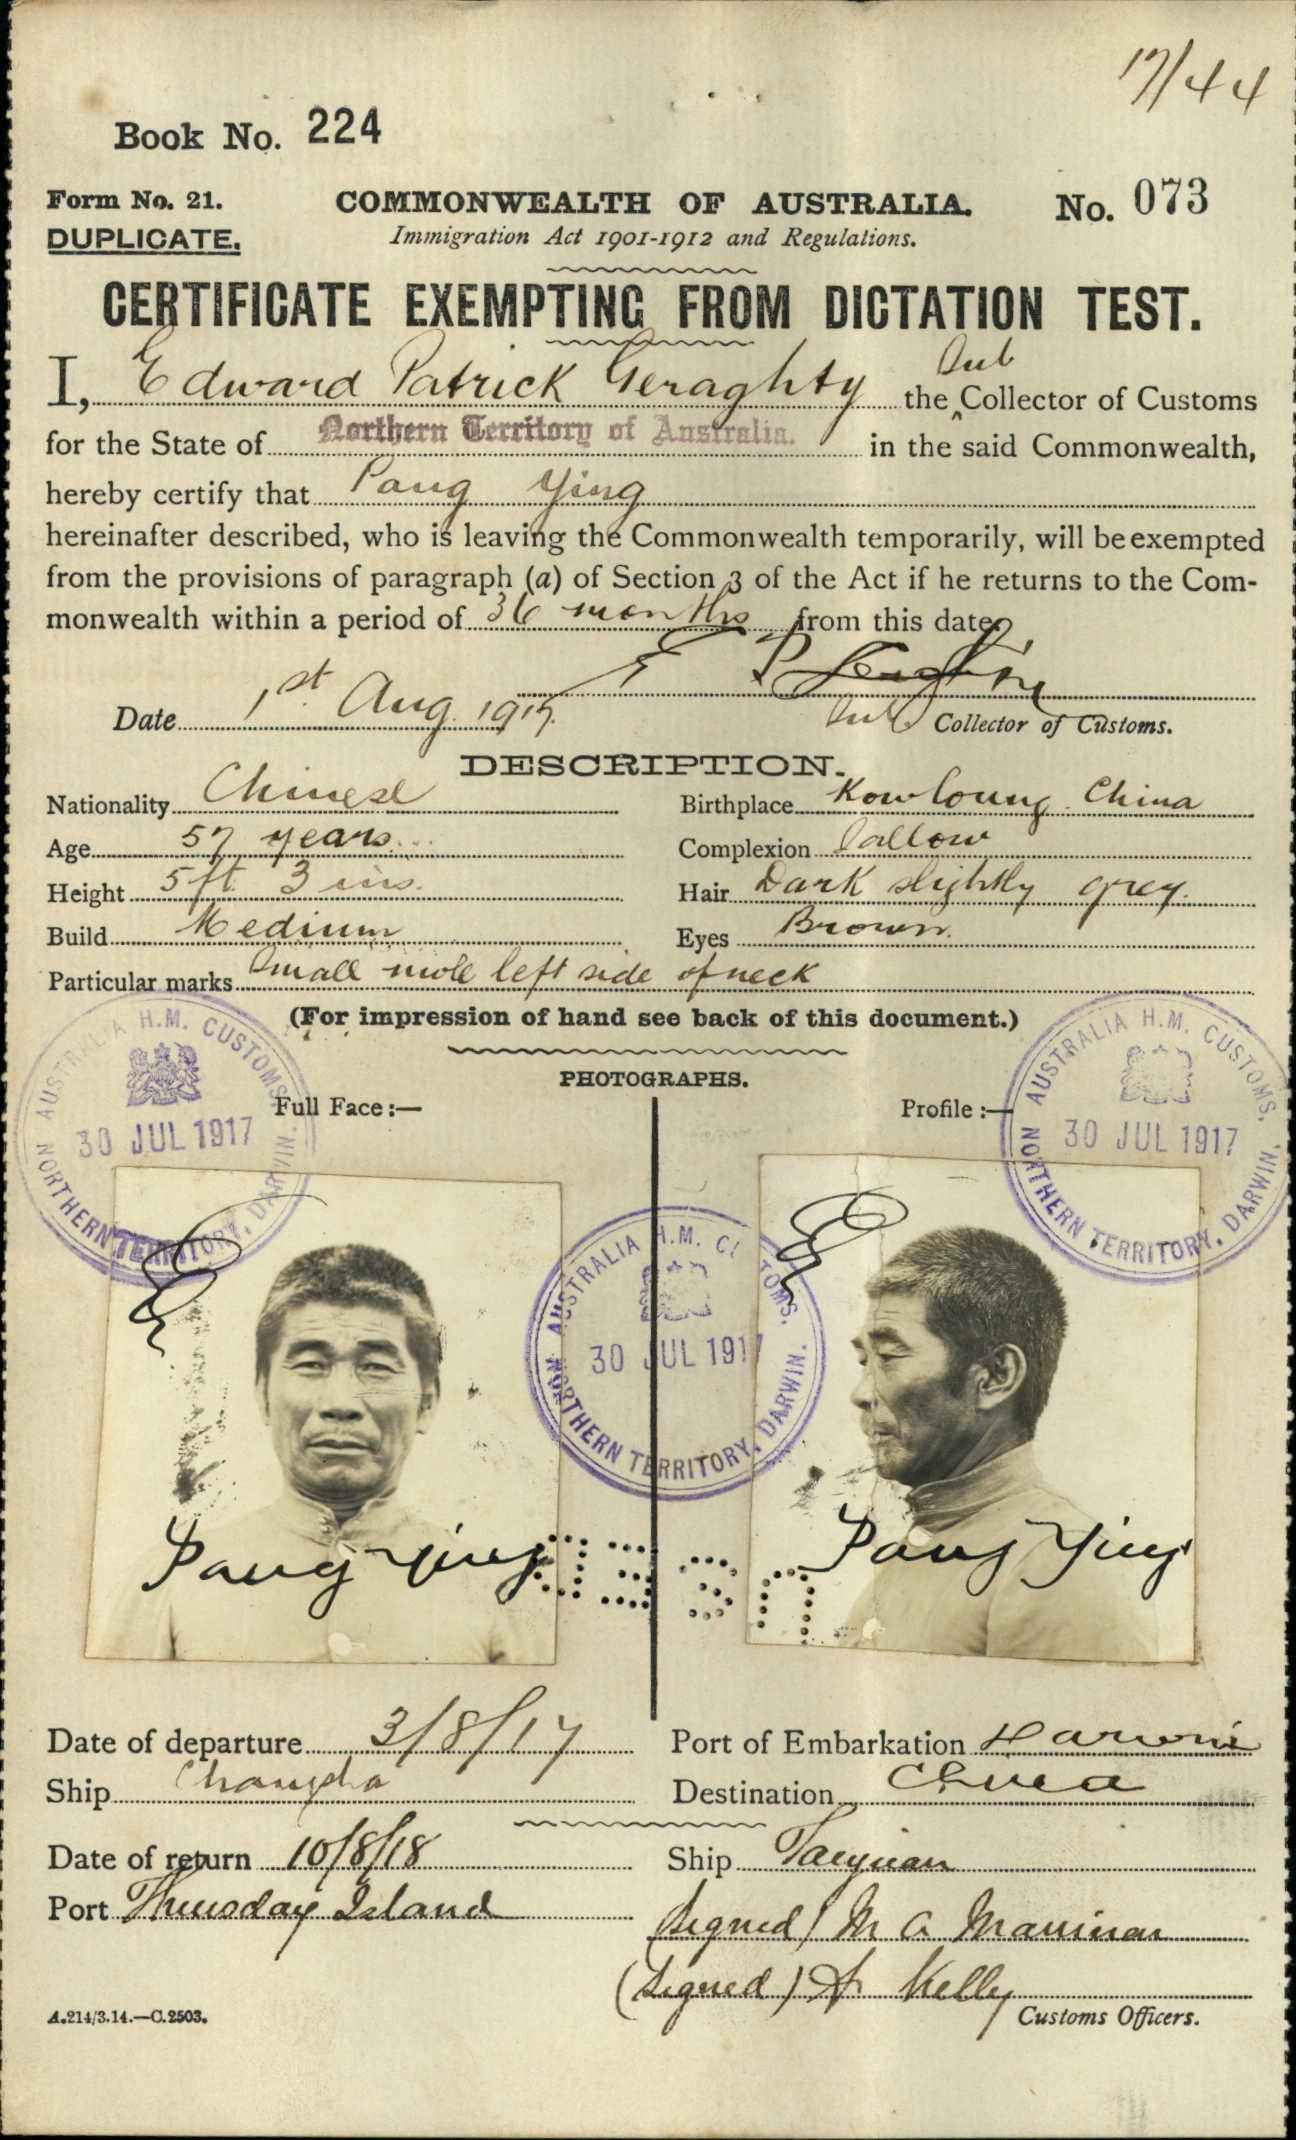 17/44
Book No. 224
Form No. 21. COMMONWEALTH OF AUSTRALIA. No. 073
DUPLICATE. Immigration Act 1901-1912 and Regulations.
CERTIFICATE EXEMPTING FROM DICTATION TEST.
Sub
I, Edward Patrick Geraghty the ^ Collector of Customs
for the State of Northern Territory of Australia. in the said Commonwealth,
hereby certify that Pang Ying
hereinafter described, who is leaving the Commonwealth temporarily, will be exempted
from the provisions of paragraph (a) of Section 3 of the Act if he returns to the Com-
monwealth within a period of 36 months from this date.
E P Geraghty
Date 1st Aug. 1917. Sub Collector of Customs.
DESCRIPTION.
Nationality Chinese Birthplace Kowloung China
Age 57 years Complexion Sallow
Height 5 ft 3 ins. Hair Dark slightly grey.
Build Medium Eyes Brown.
Particular marks Small mole left side of neck
(For impression of hand see back of this document.)
PHOTOGRAPHS.
Full Face:— Profile:—
AUSTRALIA H.M. CUSTOMS,
30 JUL 1917
NORTHERN TERRITORY, DARWIN.
AUSTRALIA H.M. CUSTOMS,
30 JUL 1917
NORTHERN TERRITORY, DARWIN.
AUSTRALIA H.M. CUSTOMS,
30 JUL 1917
NORTHERN TERRITORY, DARWIN.
Pang Ying Pang Ying
Date of departure 3/8/17 Port of Embarkation Darwin
Ship Changsha Destination China
Date of return 10/8/18 Ship Taiyuan
Port Thursday Island (Signed) M A
(Signed) A Kelly
A.214/3.14.—C.2503. Customs Officers.